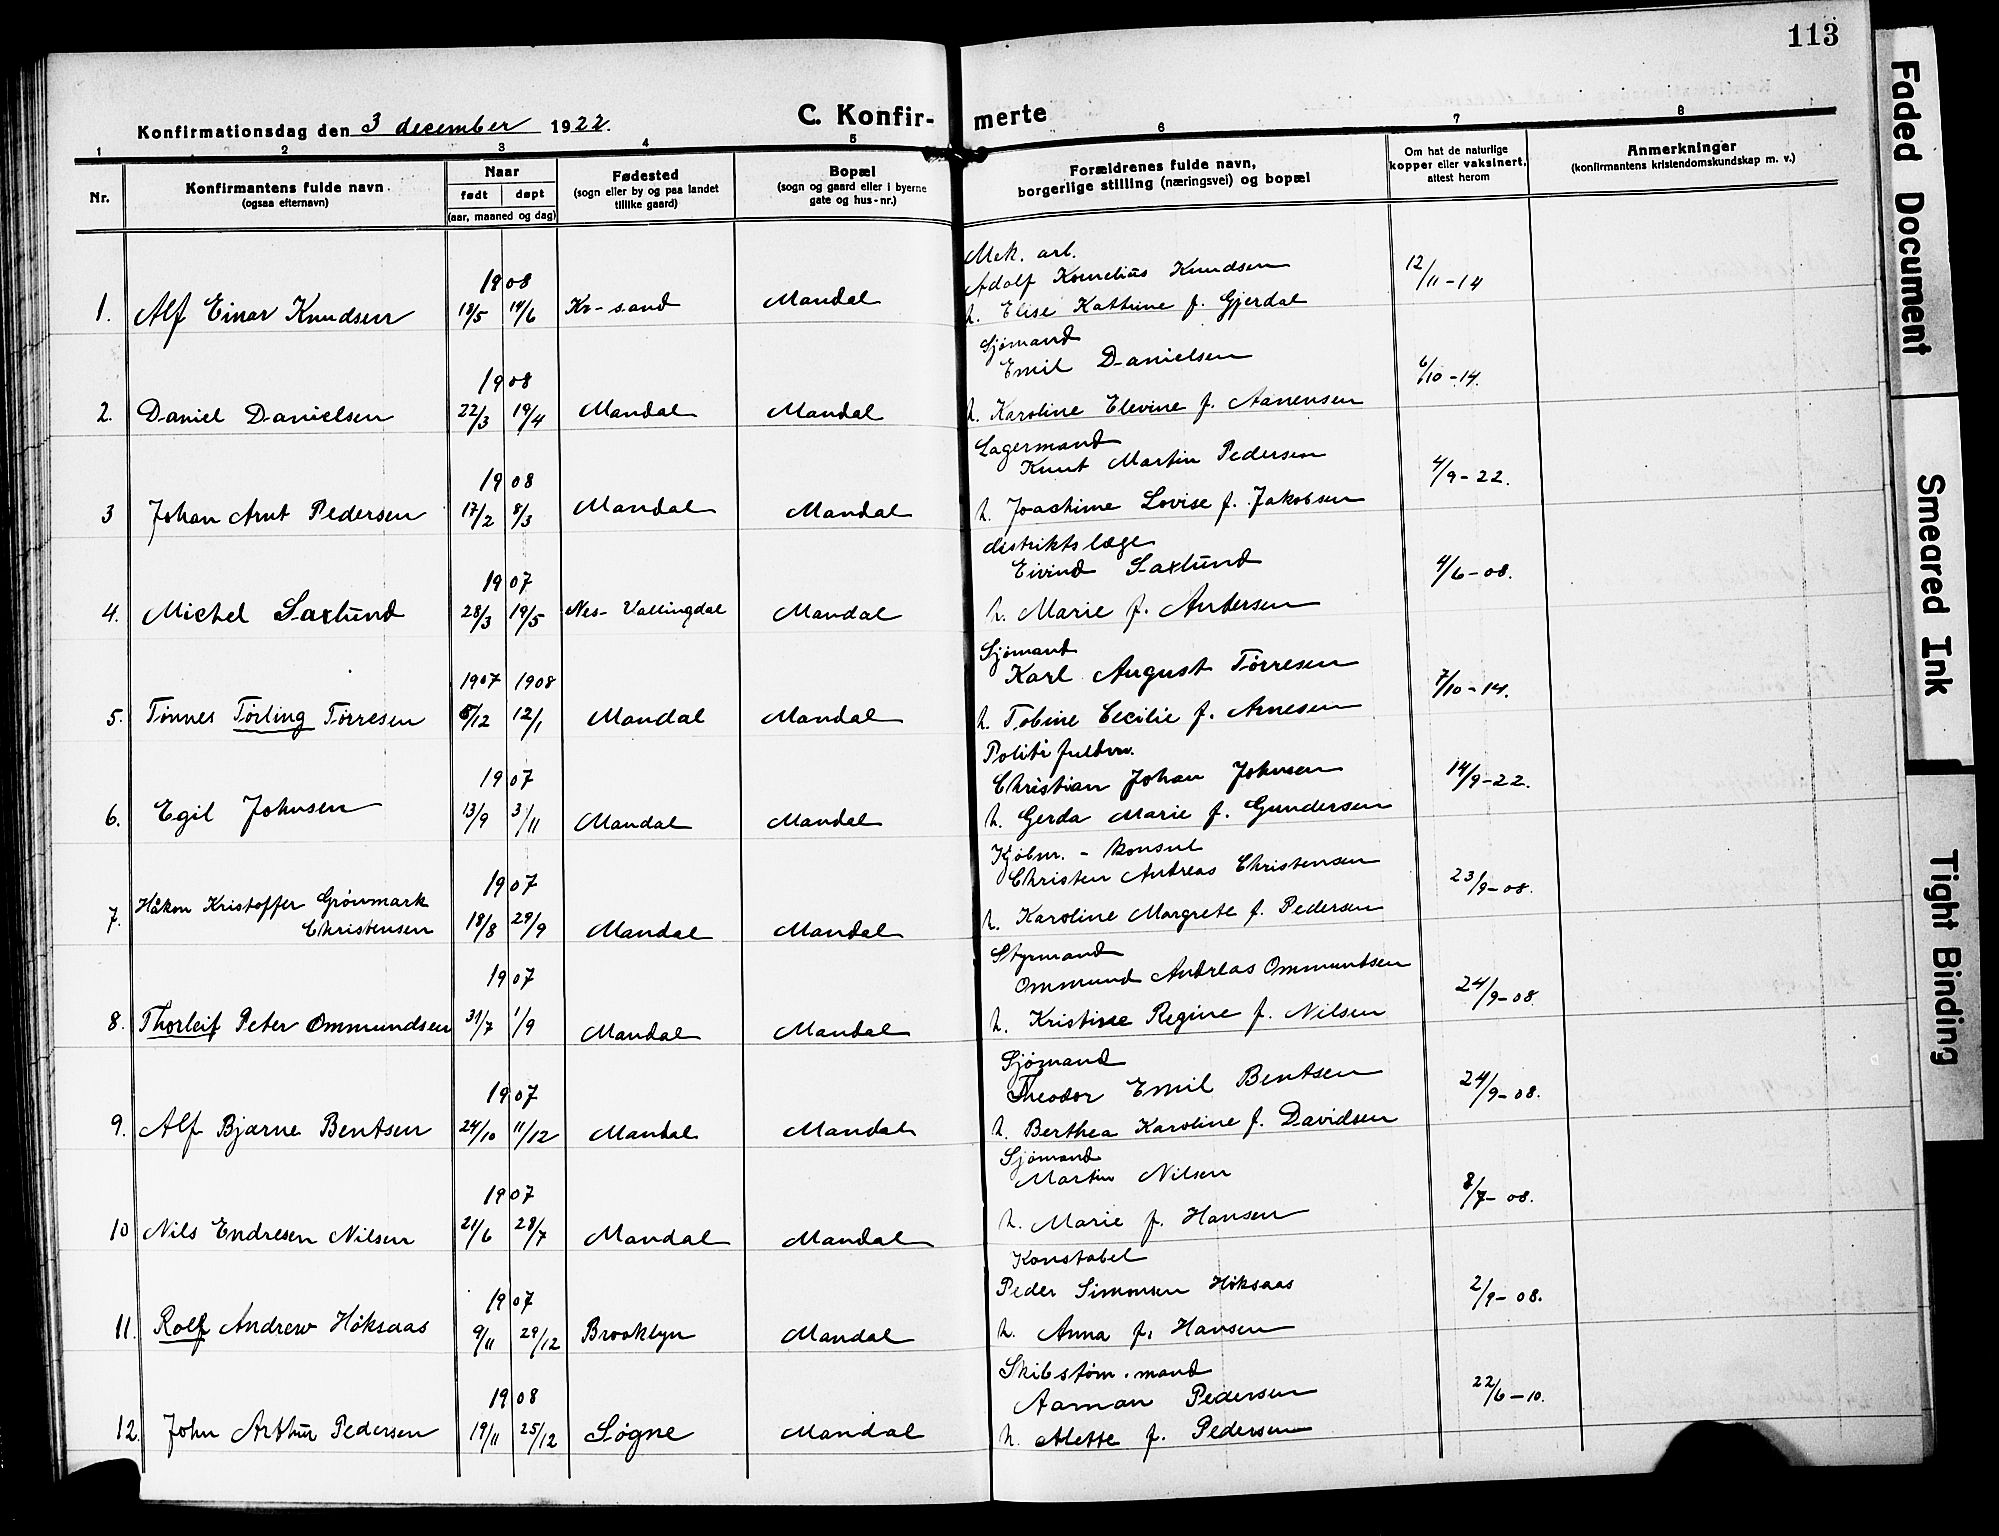 113
Konfirmationsdag den 3 december 1922.
C. Konfir- merte
1 2 3 4 5 6 7 8
Nr.
Konfirmantens fulde navn
(ogsaa efternavn)
Naar
født døpt
(aar, maaned og dag)
Fødested
(sogn eller by og paa landet
tillike gaard)
Bopæl
(sogn og gaard eller i byerne
gate og hus-nr.)
Forældrenes fulde navn,
borgerlige stilling (næringsvei) og bopæl
Om hat de naturlige
kopper eller vaksinert,
attest herom
Anmerkninger
(konfirmantens kristendomskundskap m. v.)
Mek. arb.
1908 Adolf Kornelius Knudsen 12/11-14
1. Alf Einar Knudsen 18/5 14/6 Kr-sand Mandal h. Elise Kathrine f. Gjerdal
Sjømand
1908 Emil Danielsen 6/10-14.
2. Daniel Danielsen 22/3 19/4 Mandal Mandal h. Karoline Elevine f. Aanensen
Lagermand
1908 Knut Martin Pedersen 4/9-22.
3 Johan Arnt Pedersen 17/2 8/3 Mandal Mandal h. Joachime Lovise f. Jakobsen
distriktslæge
1907 Eivind Saxlund 4/6-08.
4. Michel Saxlund 28/3 19/5 Nes-Hallingdal Mandal h. Marie f. Andersen
Sjømand
1907 1908 Karl August Tørresen 7/10-14.
5. Tønnes Tørling Tørresen /12 12/1 Mandal Mandal h. Tobine Cecilie f. Arnesen
Politifuldm.
1907 Christian Johan Johnsen 14/9-22.
6. Egil Johnsen 13/9 3/11 Mandal Mandal h. Gerda Marie f. Gundersen
Kjøbm. - konsul
1907 Christen Andreas Christensen 23/9-08.
7. Håkon Kristoffer Grönmark
Christensen 18/8 29/9 Mandal Mandal h. Karoline Margrete f. Pedersen
Styrmand
1907 Ommund Andreas Ommundsen 24/9-08.
8. Thorleif Peter Ommundsen 31/7 1/9 Mandal Mandal h. Kristine Regine f. Nilsen
Sjømand
1907 Theodor Emil Bentsen 24/9-08.
9. Alf Bjarne Bentsen 24/10 11/12 Mandal Mandal h. Berthea Karoline f. Davidsen
Sjømand
1907 Martin Nilsen 8/7-08.
10 Nils Endresen Nilsen 21/6 28/7 Mandal Mandal h. Marie f. Hansen
Konstabel
1907 Peder Simonsen Høksaas 2/9-08.
11. Rolf Andrew Høksaas 9/11 29/12 Brooklyn Mandal h. Anna f. Hansen
Skibstøm.mand
1908 Aaman Pedersen 22/6-10.
12. John Arthur Pedersen 19/11 25/12 Søgne Mandal h. Alette f. Pedersen
Faded Document
Smeared Ink
Tight Binding